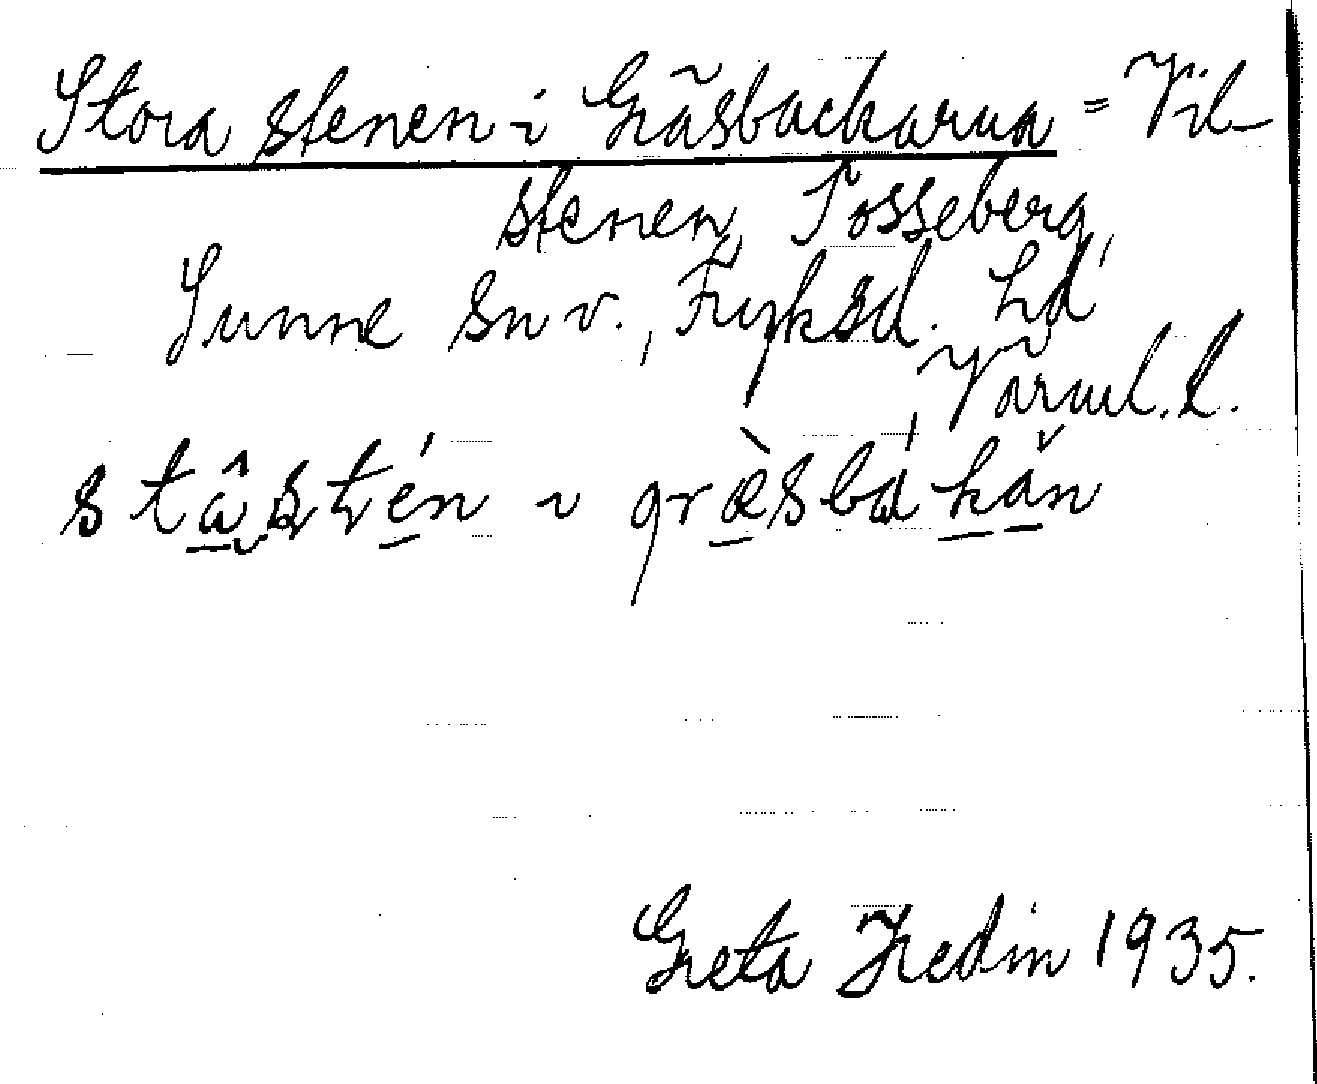 Stora stenen i Gräsbackarna = Vil-
stenen, Tosseberg,
Sunne sn v., Fryksd. hd
, Värml. l.
stâ̱s̬tén i græ̀sbákăn
Greta Hedin 1935.